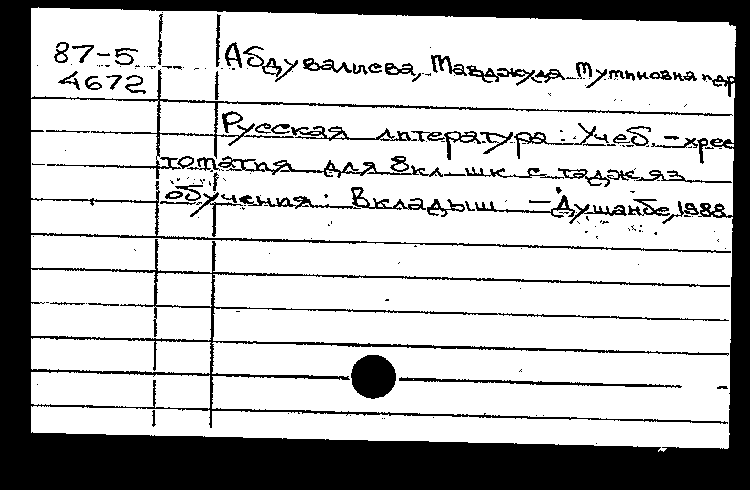 87-5
4672
Абдувалиева, Мавджуда Мутиновна и др
Русская литература: Учеб. - хрес
томатия для 8кл шк с тадж яз
обучения: Вкладыш - Душанбе, 1988